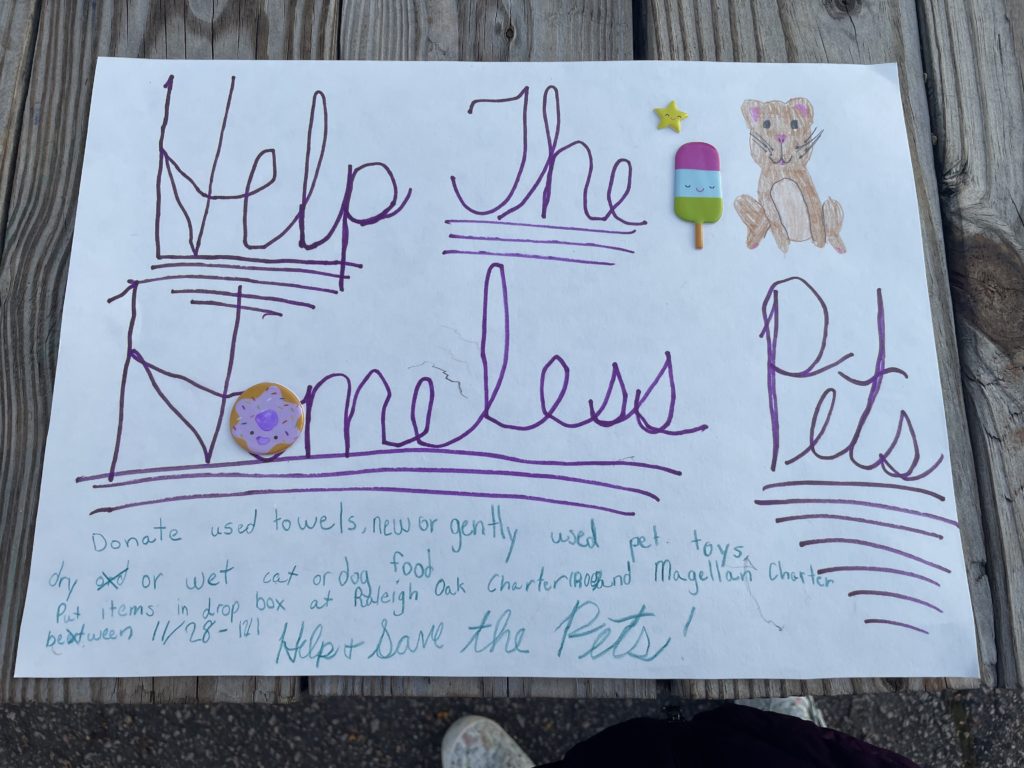 Help The
Homeless Pets
Donate used towels, new or gently used pet toys,
dry or wet cat or dog food
Put items in drop box at Raleigh Oak Charter and Magellan Charter
between 11/28-12/1
Help + Save the Pets!